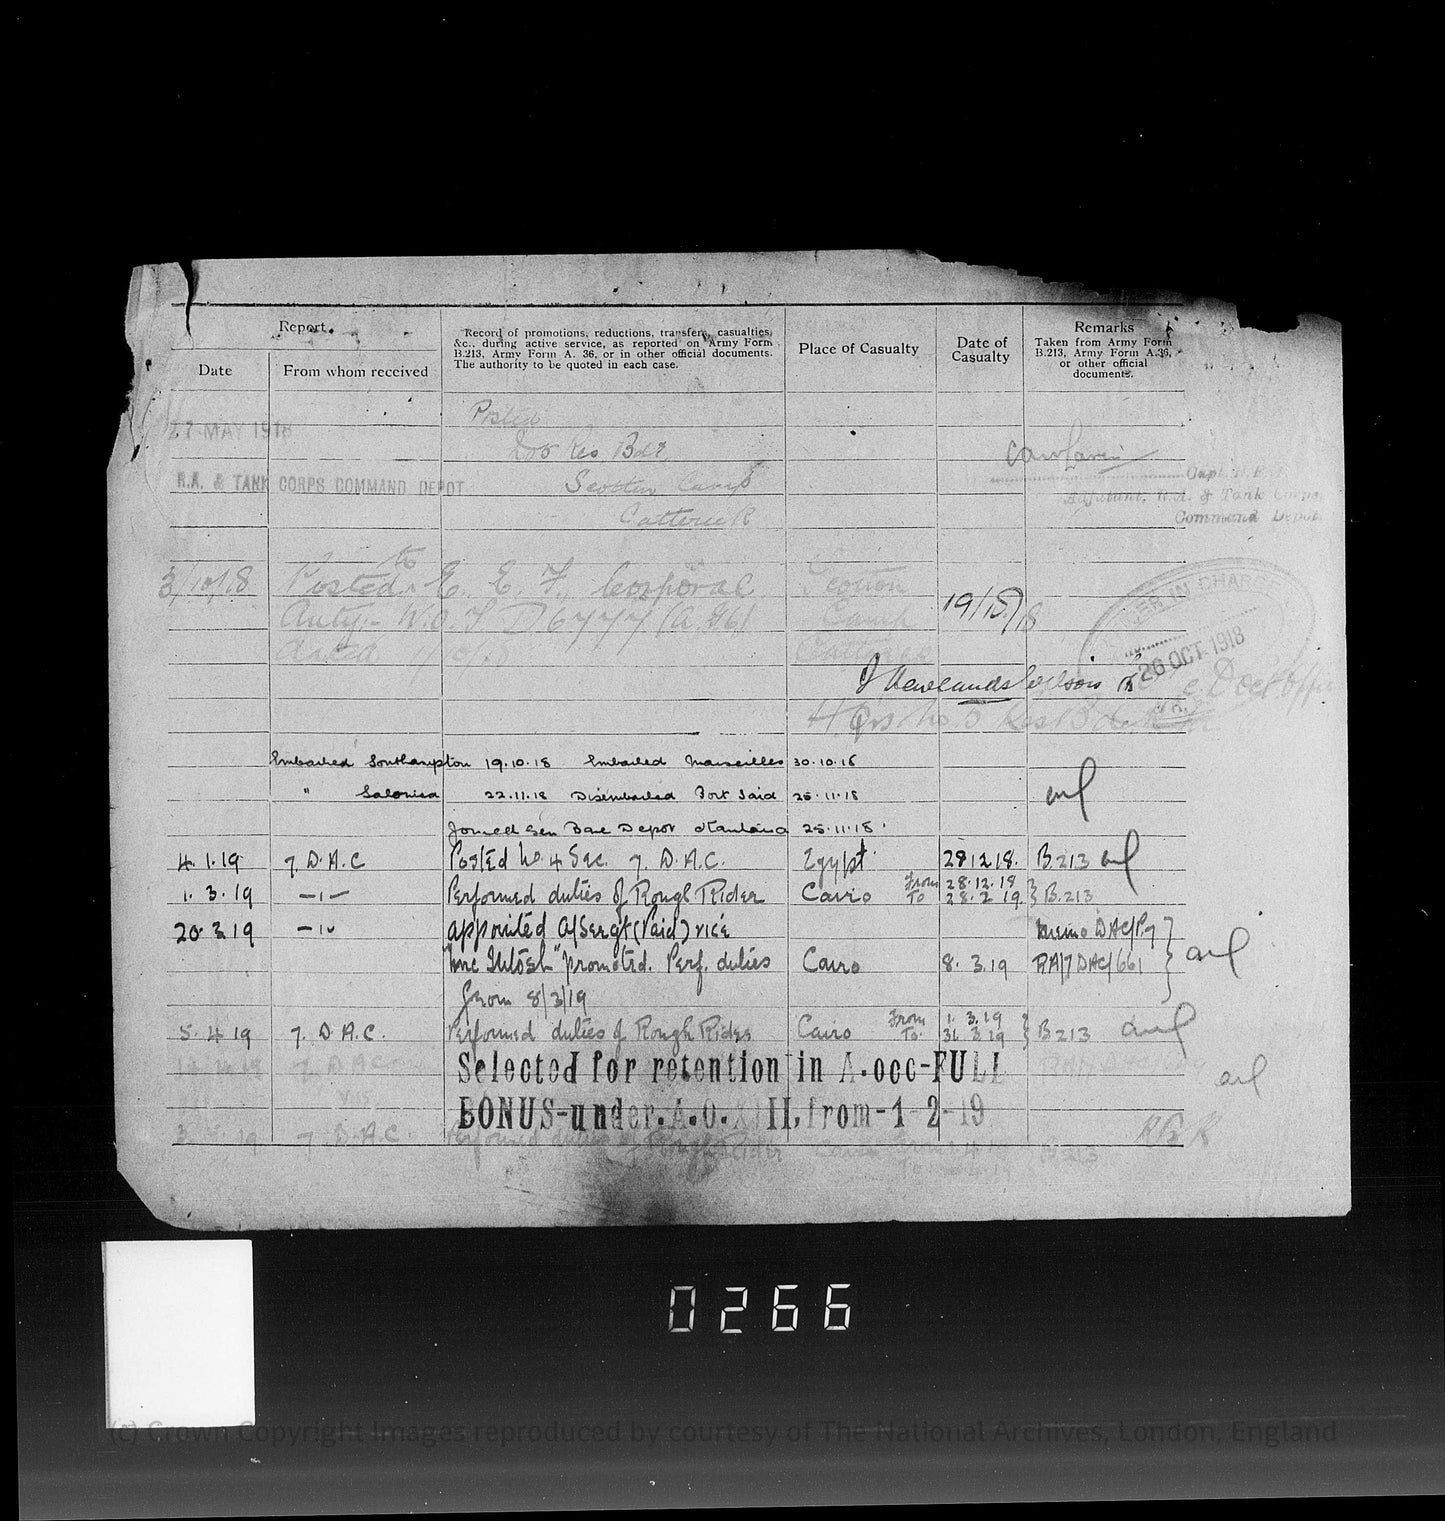 Report.
Date
From whom received
Record of promotions, reductions, transfers, casualties,
&c., during active service, as reported on Army Form
B.213, Army Form A. 36, or in other official documents.
The authority to be quoted in each case.
Place of Casualty
Date of
Casualty
Remarks
Taken from Army Form
B.213, Army Form A.36,
or other official
documents.
Posted
27 MAY 1918
Res Bde
R.A. & TANK CORPS COMMAND DEPOT
Scotton Camp
Catterick
Capt.
Adjutant, R.A. & Tank Corps,
Command Depot
3/10/18 Posted to E. E. F. Corporal Scotton
Auty:- W.O. D6777 Camp 19/10/18
dated Catterick
IN CHARGE
26 OCT 1918
Embarked Southampton 19.10.18 Embarked Marseilles 30.10.18
" Salonica 22.11.18 Disembarked Port Said 25.11.18
Joined Gen Base Depot Kantara 25.11.18
4.1.19 7. D.A.C Posted No 4 Sec. 7. D.A.C. Egypt 28.12.18. B213
1.3.19 -"- Performed duties of Rough Rider Cairo From 28.12.18 To 28.2.19 } B.213
20.3.19 -"- appointed A/Sergt (Paid) vice Memo DAC/P9
"McIntosh" promoted. Perf. duties Cairo 8.3.19 RA/7DAC/661
from 8/3/19
5.4.19 7. D.A.C. Performed duties of Rough Rider Cairo From 1.3.19 To 31.3.19 } B213
Selected for retention in A.occ-FULL
BONUS-under.A.O.XIII.from-1-2-19
7. D.A.C. Performed duties of Rough Rider Cairo B213
0266
(c) Crown Copyright Images reproduced by courtesy of The National Archives, London, England